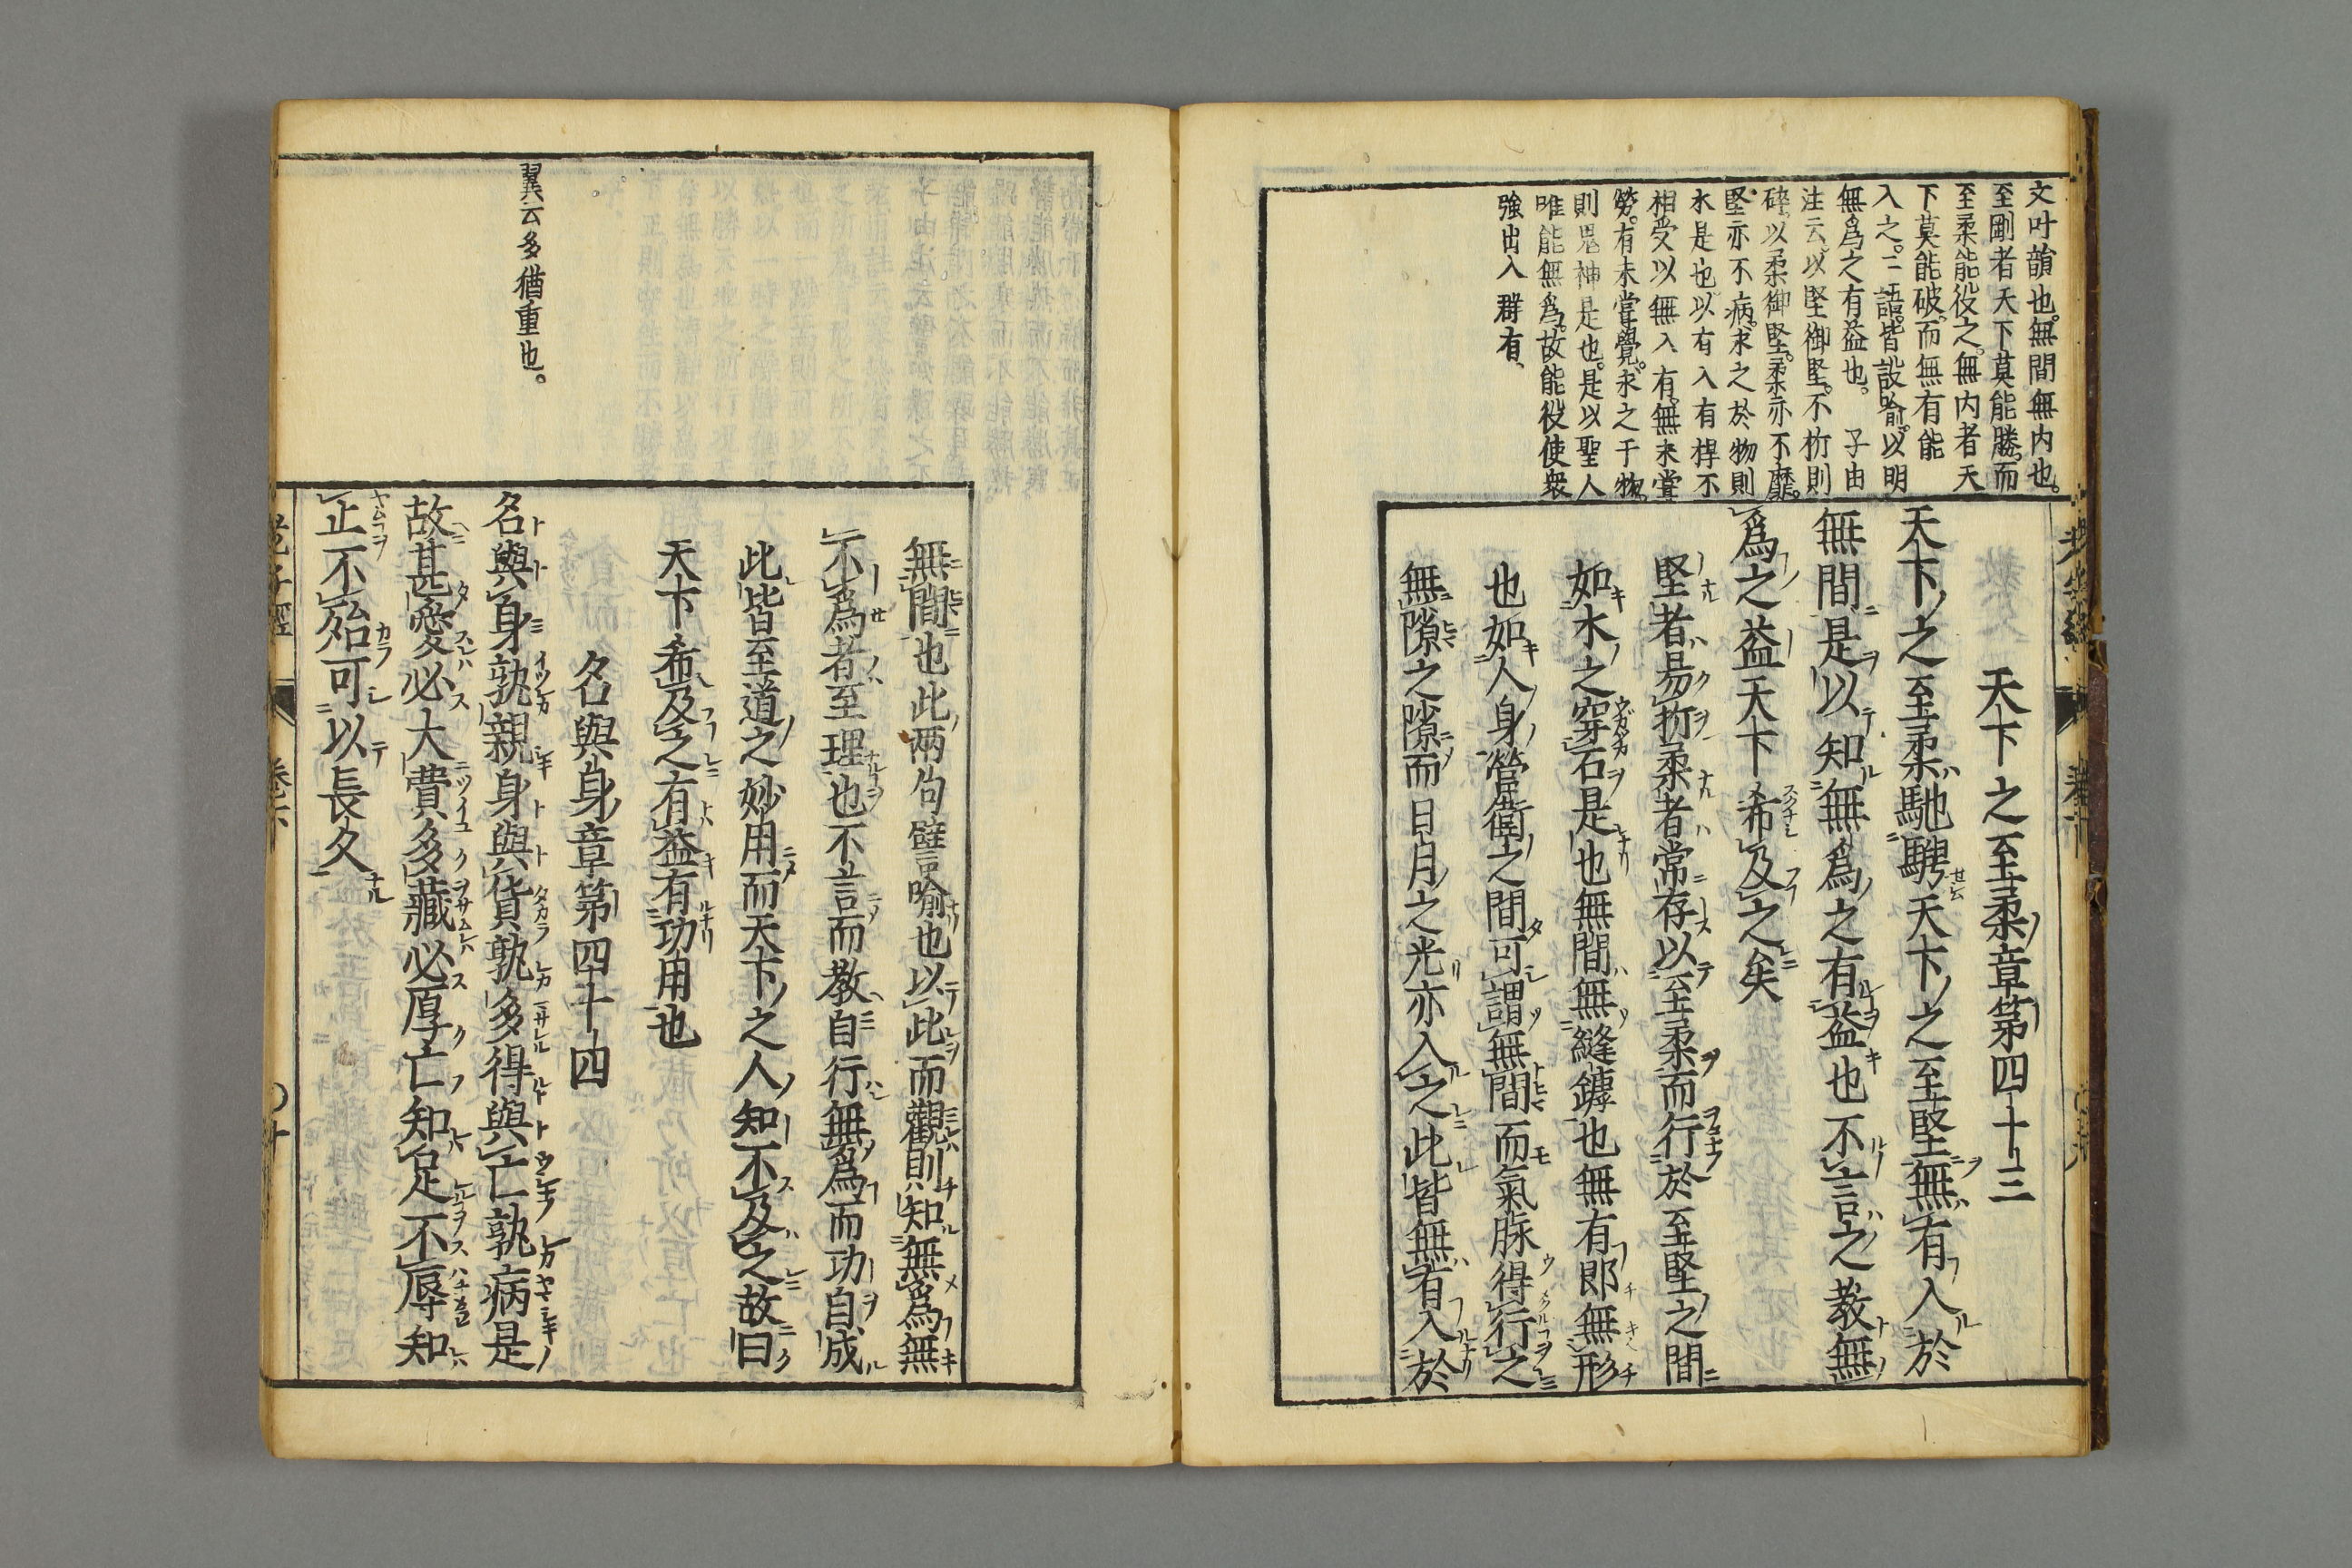 文叶韻也。無間無内也。
至剛者天下莫能勝。而
至柔能役之。無内者天
下莫能破。而無有能
入之。二語皆設喻。以明
無爲之有益也。 子由
注云、以堅御堅。不折則
碎、以柔御堅。柔亦不靡。
堅亦不病。求之於物則
水是也。以有入有捍不
相受以無入有。無未嘗
勞。有未嘗覺。求之于物。
則鬼神是也。是以聖人
唯能無爲。故能役使衆
強出入群有、
天下之至柔章第四十三
天下之至柔馳騁天下之至堅無有入於
無間是以知無爲之有益也不言之教無
爲之益天下希及之矣
堅者易折柔者常存以至柔而行於至堅之間
如水之穿石是也無間無縫罅也無有郎無形
也如人身營衛之間可謂無間而氣脉得行之
無隙之隙而日月之光亦入之此皆無有入於
無間也此兩句譬喻也以此而觀則知無爲無
不爲者至理也不言而教自行無爲而功自成
此皆至道之妙用而天下之人知不及之故曰
天下希及之有益有功用也
名與身章第四十四
翼云多猶重也。
名與身孰親身與貨孰多得與亡孰病是
故甚愛必大費多藏必厚亡知足不辱知
止不殆可以長久
老子經 卷六 〇十